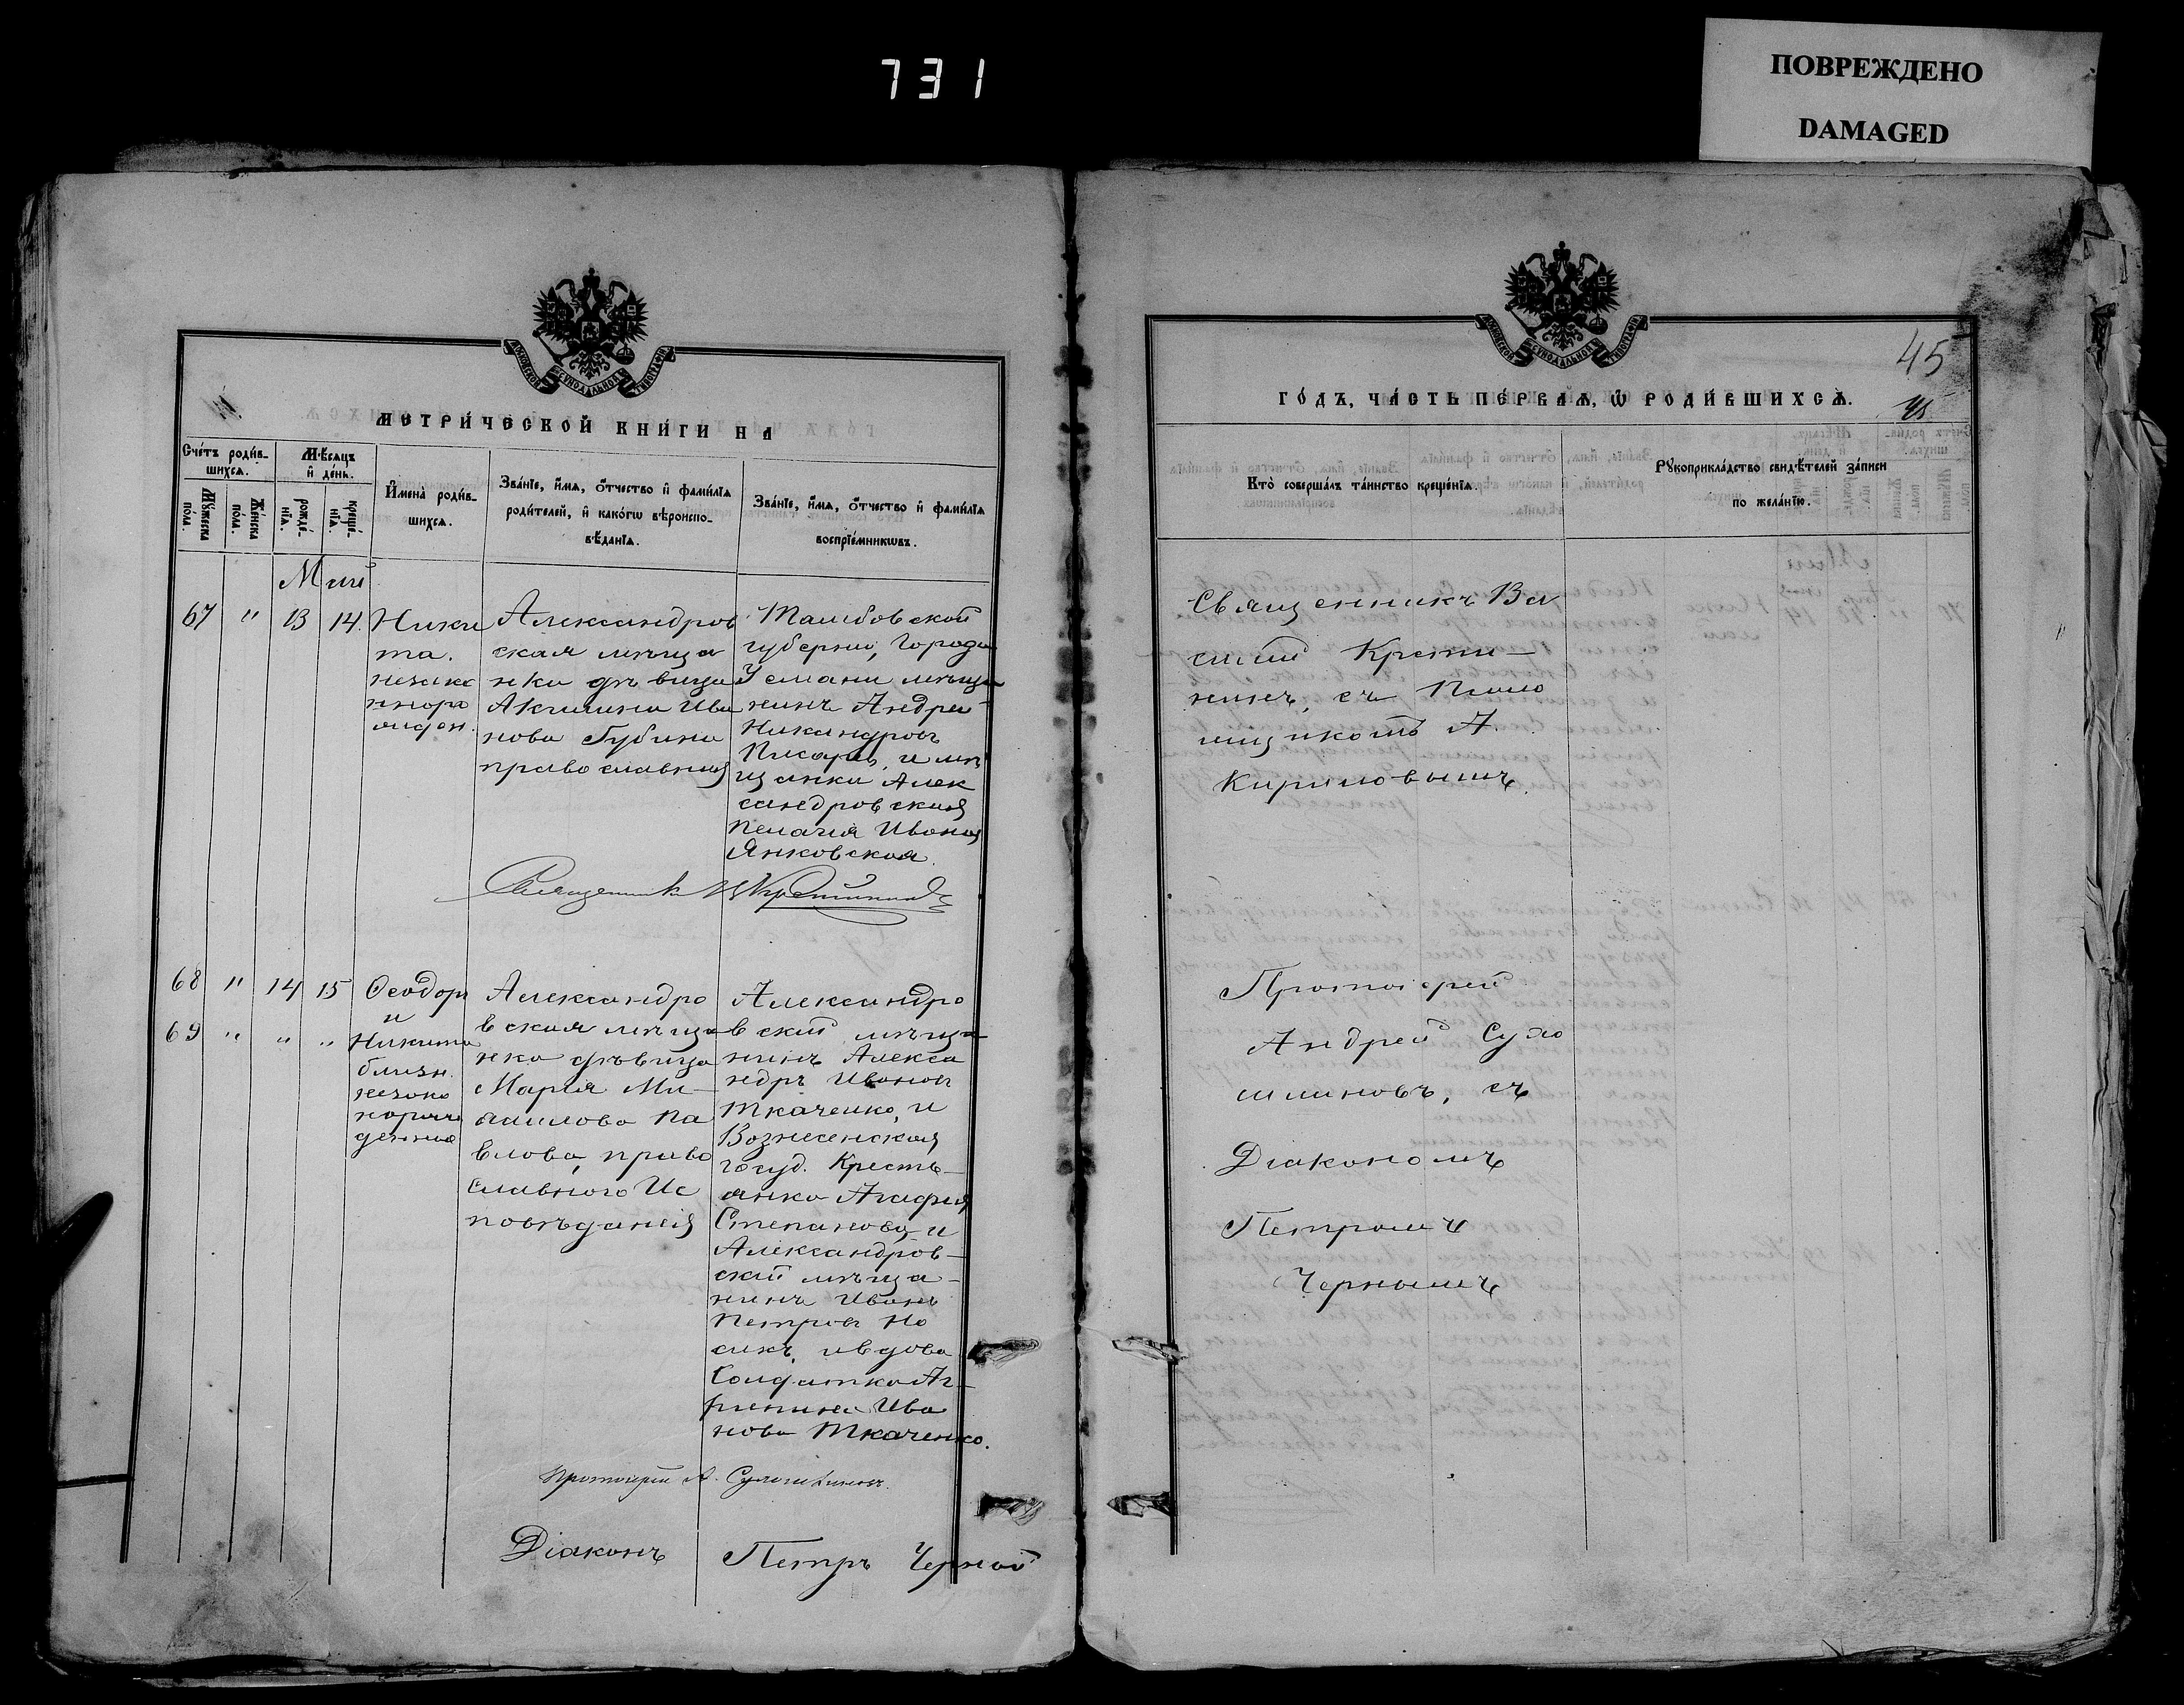 731
ПОВРЕЖДЕНО
DAMAGED
МОСКОВСКОЙ СѴНОДАЛЬНОЙ ТИПОГРАФІИ
МЕТРИ́ЧЕСКОЙ КНИ́ГИ НА
Сче́тъ роди́в-
шихсѧ.
Мѣ́сѧцъ
и҆ де́нь.
Мꙋ́жеска
по́ла.
Же́нска
по́ла.
рожде́-
нїѧ.
креще́-
нїѧ.
И҆мена̀ роди́в-
шихсѧ.
Зва́нїе, и҆́мѧ, ѻ҆́тчество и҆ фами́лїѧ
роди́телей, и҆ како́гѡ вѣроиспо-
вѣ́данїѧ.
Зва́нїе, и҆́мѧ, ѻ҆́тчество и҆ фами́лїѧ
воспрїе́мникѡвъ.
Май
67 " 13 14.
Ники
та.
незако
норо
жден.
Александров
ская мѣща
нка дѣвица
Акилина Ива
нова Губина
православная
Тамбовской
губерніи, Города
Усмани мѣща
нинъ Андрей
Никандровъ
Писаревъ, и мѣ
щанка Алек
сандровская
Пелагія Иванова
Янковская.
Священникъ В Кретининъ
68 " 14 15
69 " " "
Ѳеодоръ
и
Никита
близн.
незако
норож
денные
Александро
вская мѣща
нка дѣвица
Марія Ми-
хаилова Па
влова, право
славного Ис
повѣданія
Александро
вскій мѣща
нинъ Алекса
ндръ Ивановъ
Ткаченко, и
Вознесенская
госуд. Кресть-
янка Агафія
Степанова, и
Александров-
скій мѣща-
нинъ Иванъ
Петровъ Но
сикъ, и вдова
Солдатка Аг-
рипина Ива
нова Ткаченко.
Протоіерей А. Сухомлиновъ.
Діаконъ Петръ Черной
45
ГО́ДЪ, ЧА́СТЬ ПЕ́РВАѦ, Ѡ҆ РОДИ́ВШИХСѦ.
Кто̀ соверша́лъ та́инство креще́нїѧ.
Рꙋкоприкла́дство свидѣ́телей за́писи
по жела́нїю.
Священникъ Ва
силій Крети-
нинъ, съ Псало
мщикомъ А.
Кириловымъ.
Протоіерей
Андрей Сухо
млиновъ, съ
Діакономъ
Петромъ
Чернымъ